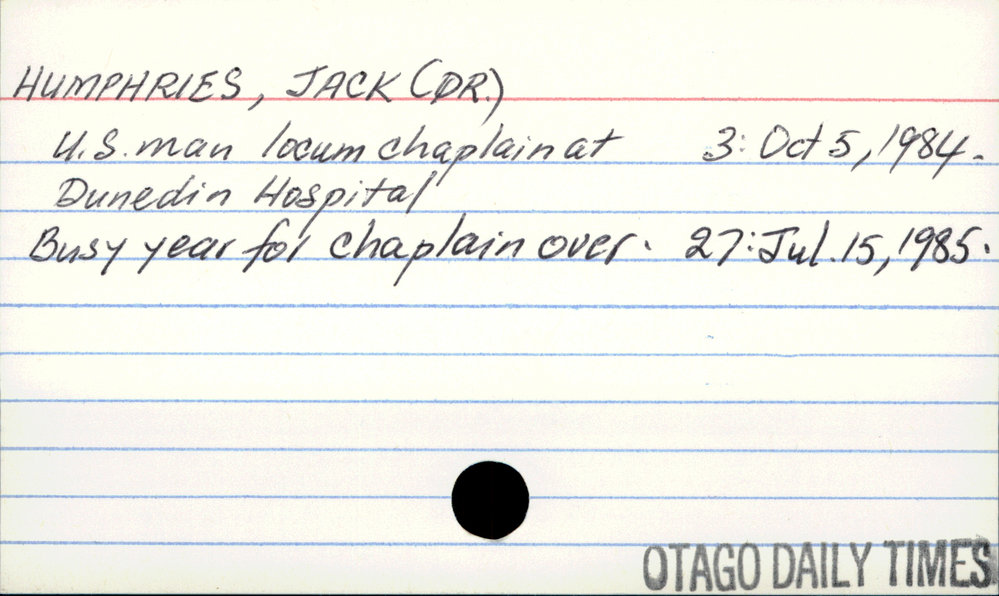 HUMPHRIES, JACK (DR.)
U.S. man locum chaplain at 3: Oct 5, 1984.
Dunedin Hospital
Busy year for chaplain over. 27: Jul. 15, 1985.
OTAGO DAILY TIMES